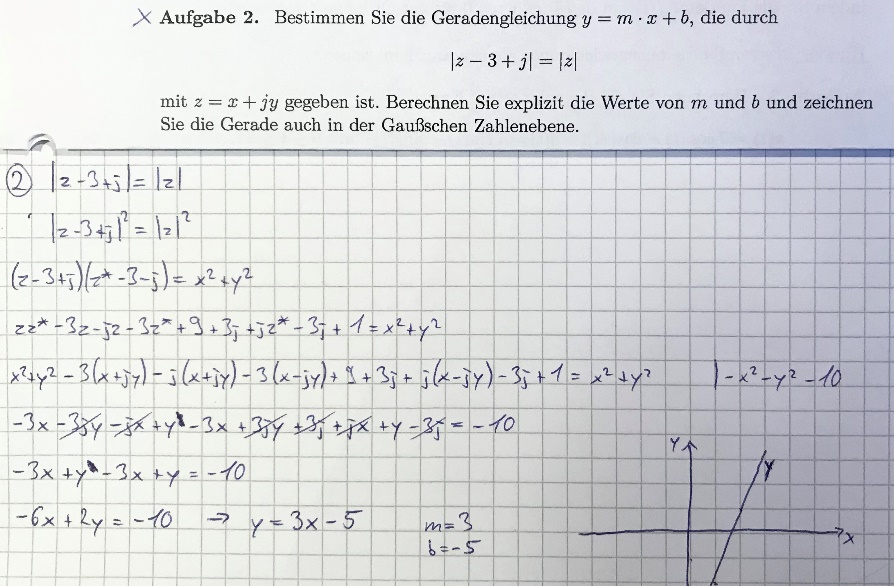 X Aufgabe 2. Bestimmen Sie die Geradengleichung y = m · x + b, die durch
|z − 3 + j| = |z|
mit z = x + jy gegeben ist. Berechnen Sie explizit die Werte von m und b und zeichnen
Sie die Gerade auch in der Gaußschen Zahlenebene.
② |z-3+j| = |z|
|z-3+j|² = |z|²
(z-3+j)(z*-3-j) = x²+y²
zz* -3z -jz -3z* +9 +3j +jz* -3j +1 = x²+y²
x²+y² -3(x+jy) -j(x+jy) -3(x-jy) +9 +3j + j(x-jy) -3j +1 = x²+y² | -x²-y²-10
-3x -3jy -jx +y -3x +3jy +3j +jx +y -3j = -10
-3x +y -3x +y = -10
-6x + 2y = -10 ⇒ y = 3x - 5 m=3
b=-5
y
y
x